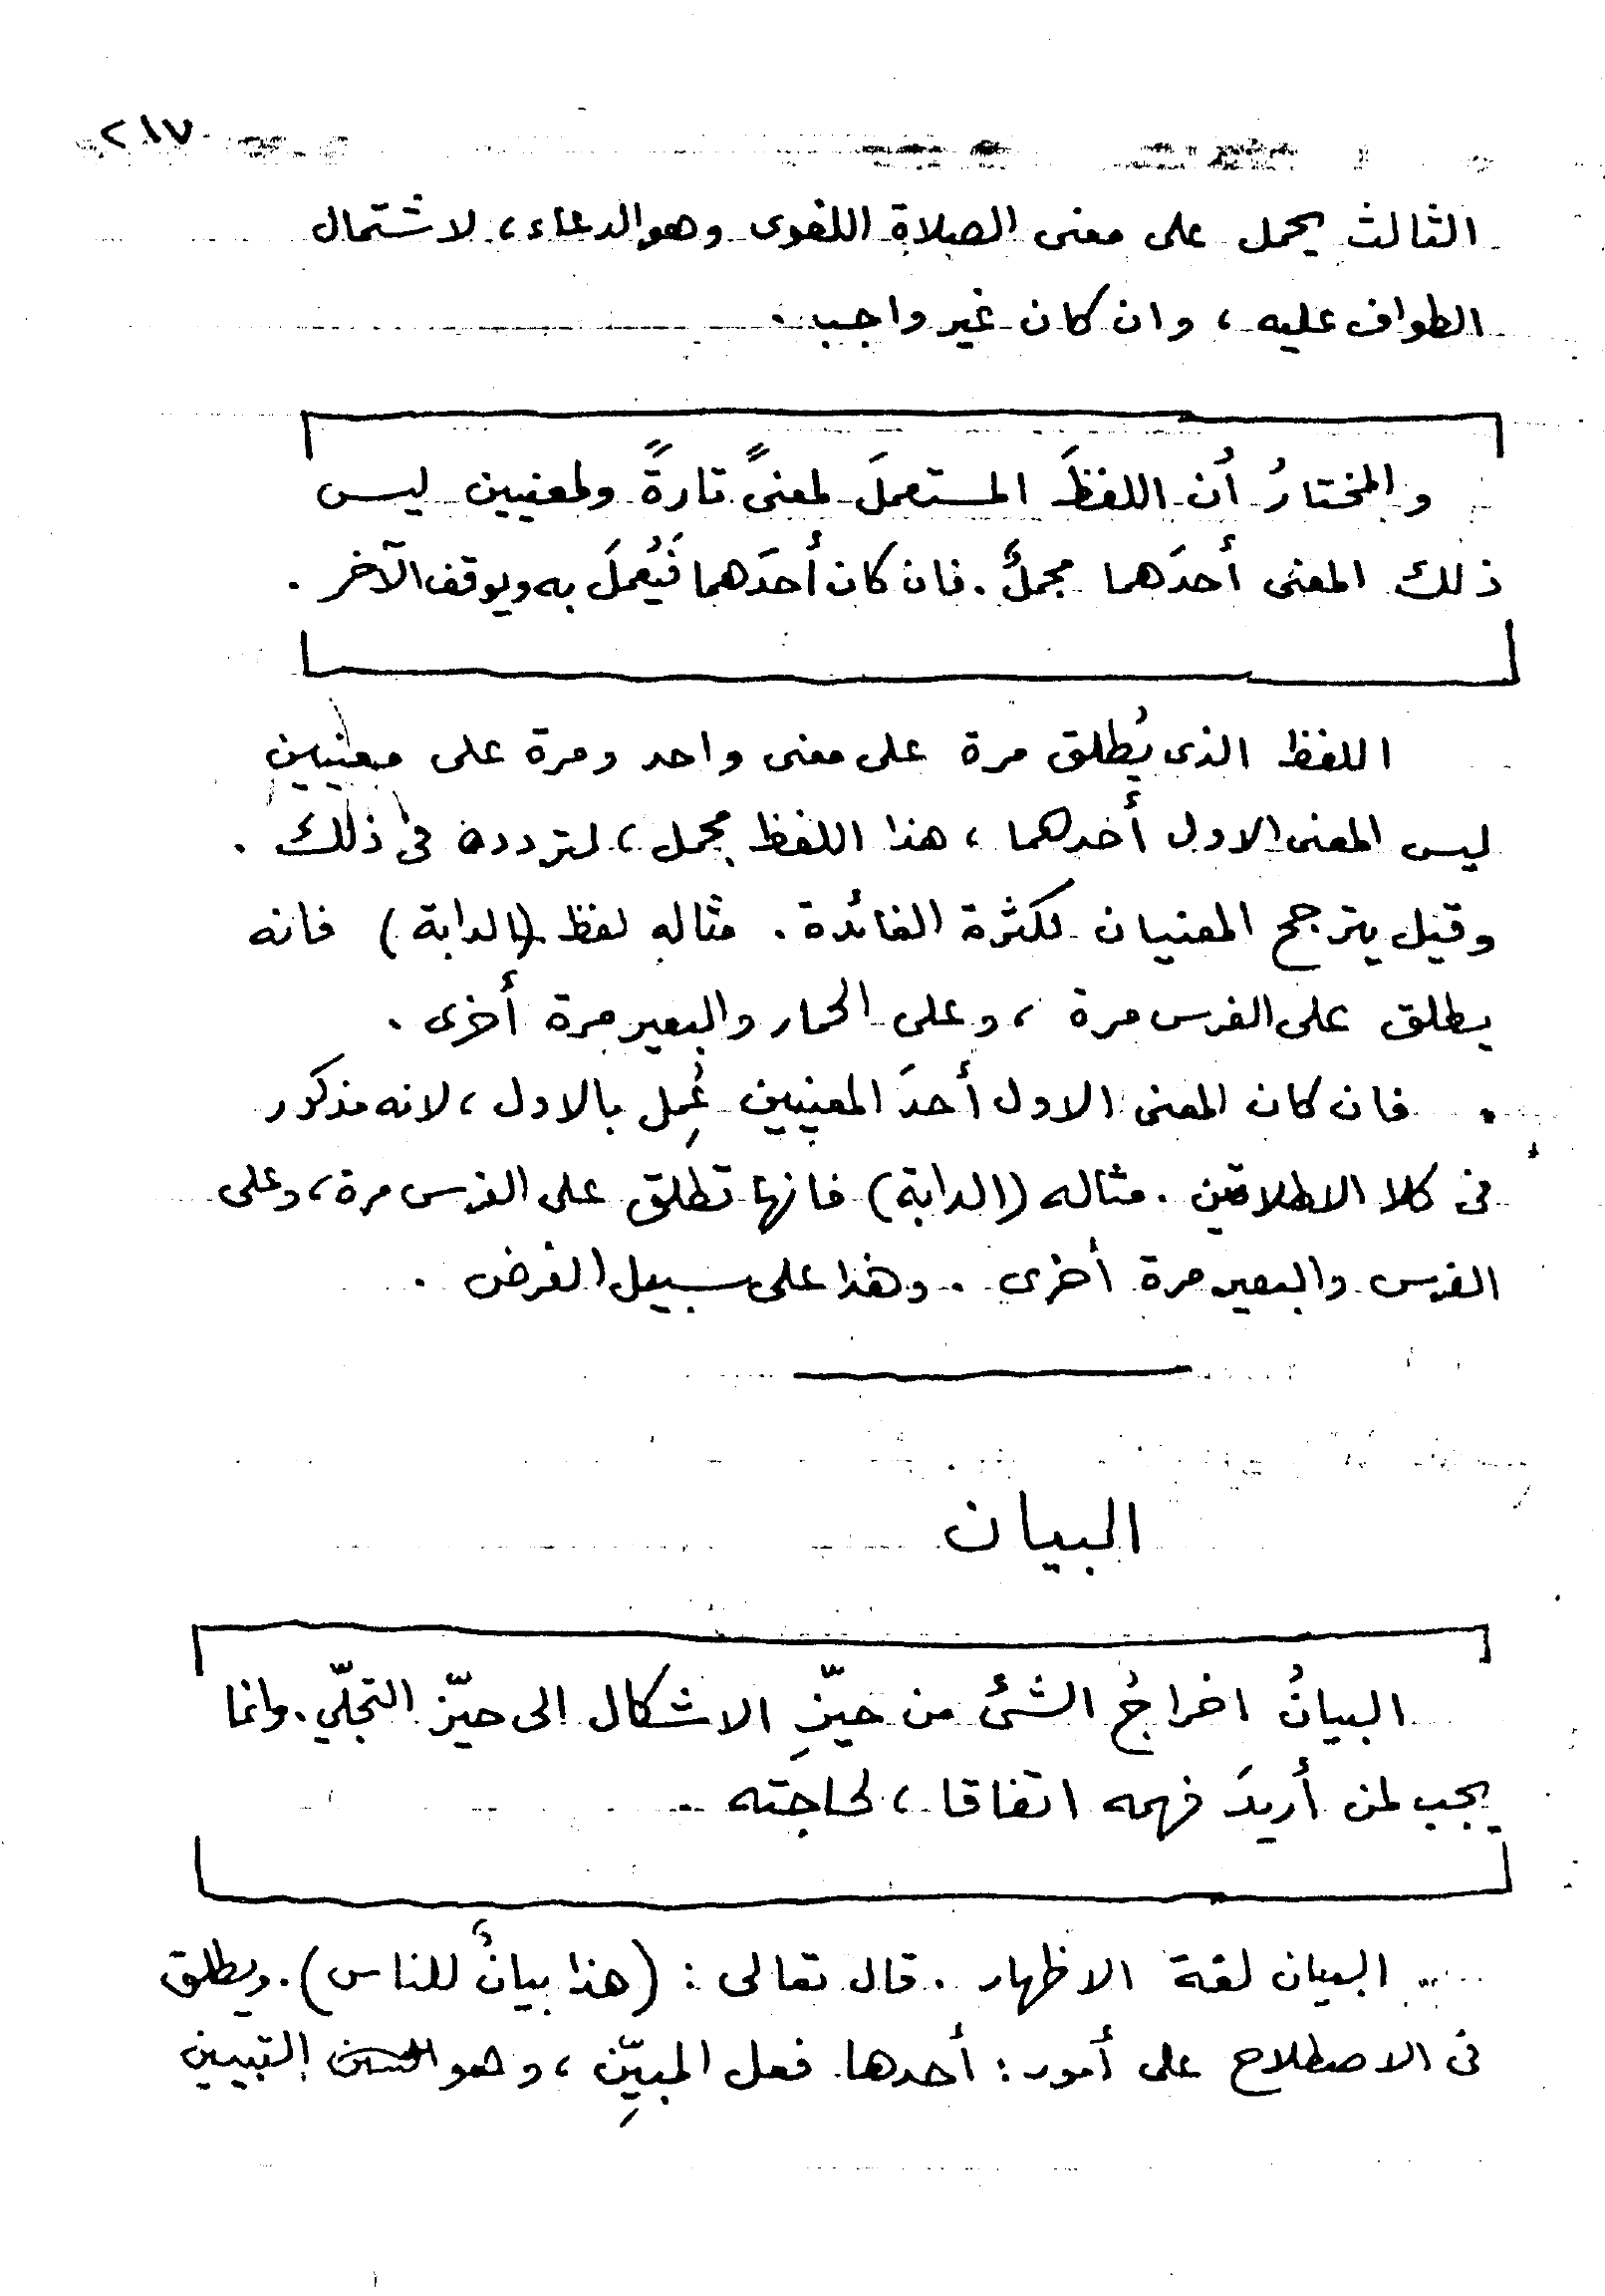 ٢١٧
الثالث يحمل على معنى الصلاة اللغوى وهو الدعاء، لاشتمال
الطواف عليه ، وان كان غير واجب .
والمختارُ أن اللفظَ المستعملَ لمعنىً تارةً ولمعنيين ليس
ذلك المعنى أحدَهما مجملٌ . فان كان أحدَهما فَيُعملَ به ويوقف الآخر .
اللفظ الذى يُطلق مرة على معنى واحد ومرة على معنيين
ليس المعنى الاول أحدهما ، هذا اللفظ مجمل ، لتردده فى ذلك .
وقيل يترجح المعنيان لكثرة الفائدة . مثاله لفظ (الدابة) فانه
يطلق على الفرس مرة ، وعلى الحمار والبعير مرة أخرى .
فان كان المعنى الاول أحدَ المعنيين عُمِل بالاول ، لانه مذكور
فى كلا الاطلاقين . مثاله (الدابة) فانها تطلق على الفرس مرة ، وعلى
الفرس والبعير مرة أخرى . وهذا على سبيل الفرض .
البيان
البيانُ اخراجُ الشئ من حيّزِ الاشكال الى حيّز التجلّي . وانما
يجب لمن أريدَ فهمه اتفاقا ، لحاجته
البيان لغة الاظهار . قال تعالى : (هذا بيانٌ للناس) . ويطلق
فى الاصطلاح على أمور : أحدها فعل المبيّنِ ، وهو التبيين